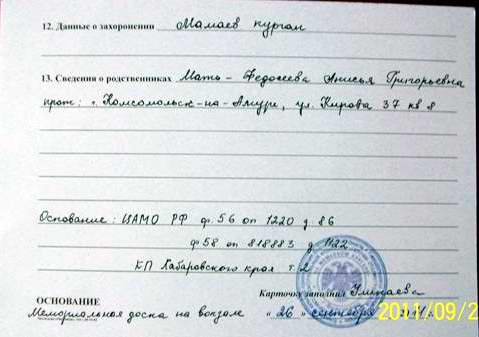 12. Данные о захоронении Мамаев курган
13. Сведения о родственниках Мать - Федосеева Анисья Григорьевна
прож: г. Комсомольск-на-Амуре, ул. Кирова 37 кв 8
Основание: ЦАМО РФ ф. 56 оп 1220 д. 86
ф 58 оп 818883 д. 1122
КП Хабаровского края т. 2
Карточку заполнил
ОСНОВАНИЕ
Мемориальная доска на вокзале "26" сентября
2011/09/2